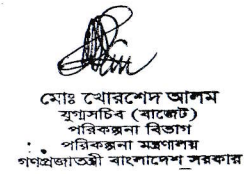 মোঃ খোরশেদ আলম
যুগ্মসচিব (বাজেট)
পরিকল্পনা বিভাগ
পরিকল্পনা মন্ত্রণালয়
গণপ্রজাতন্ত্রী বাংলাদেশ সরকার